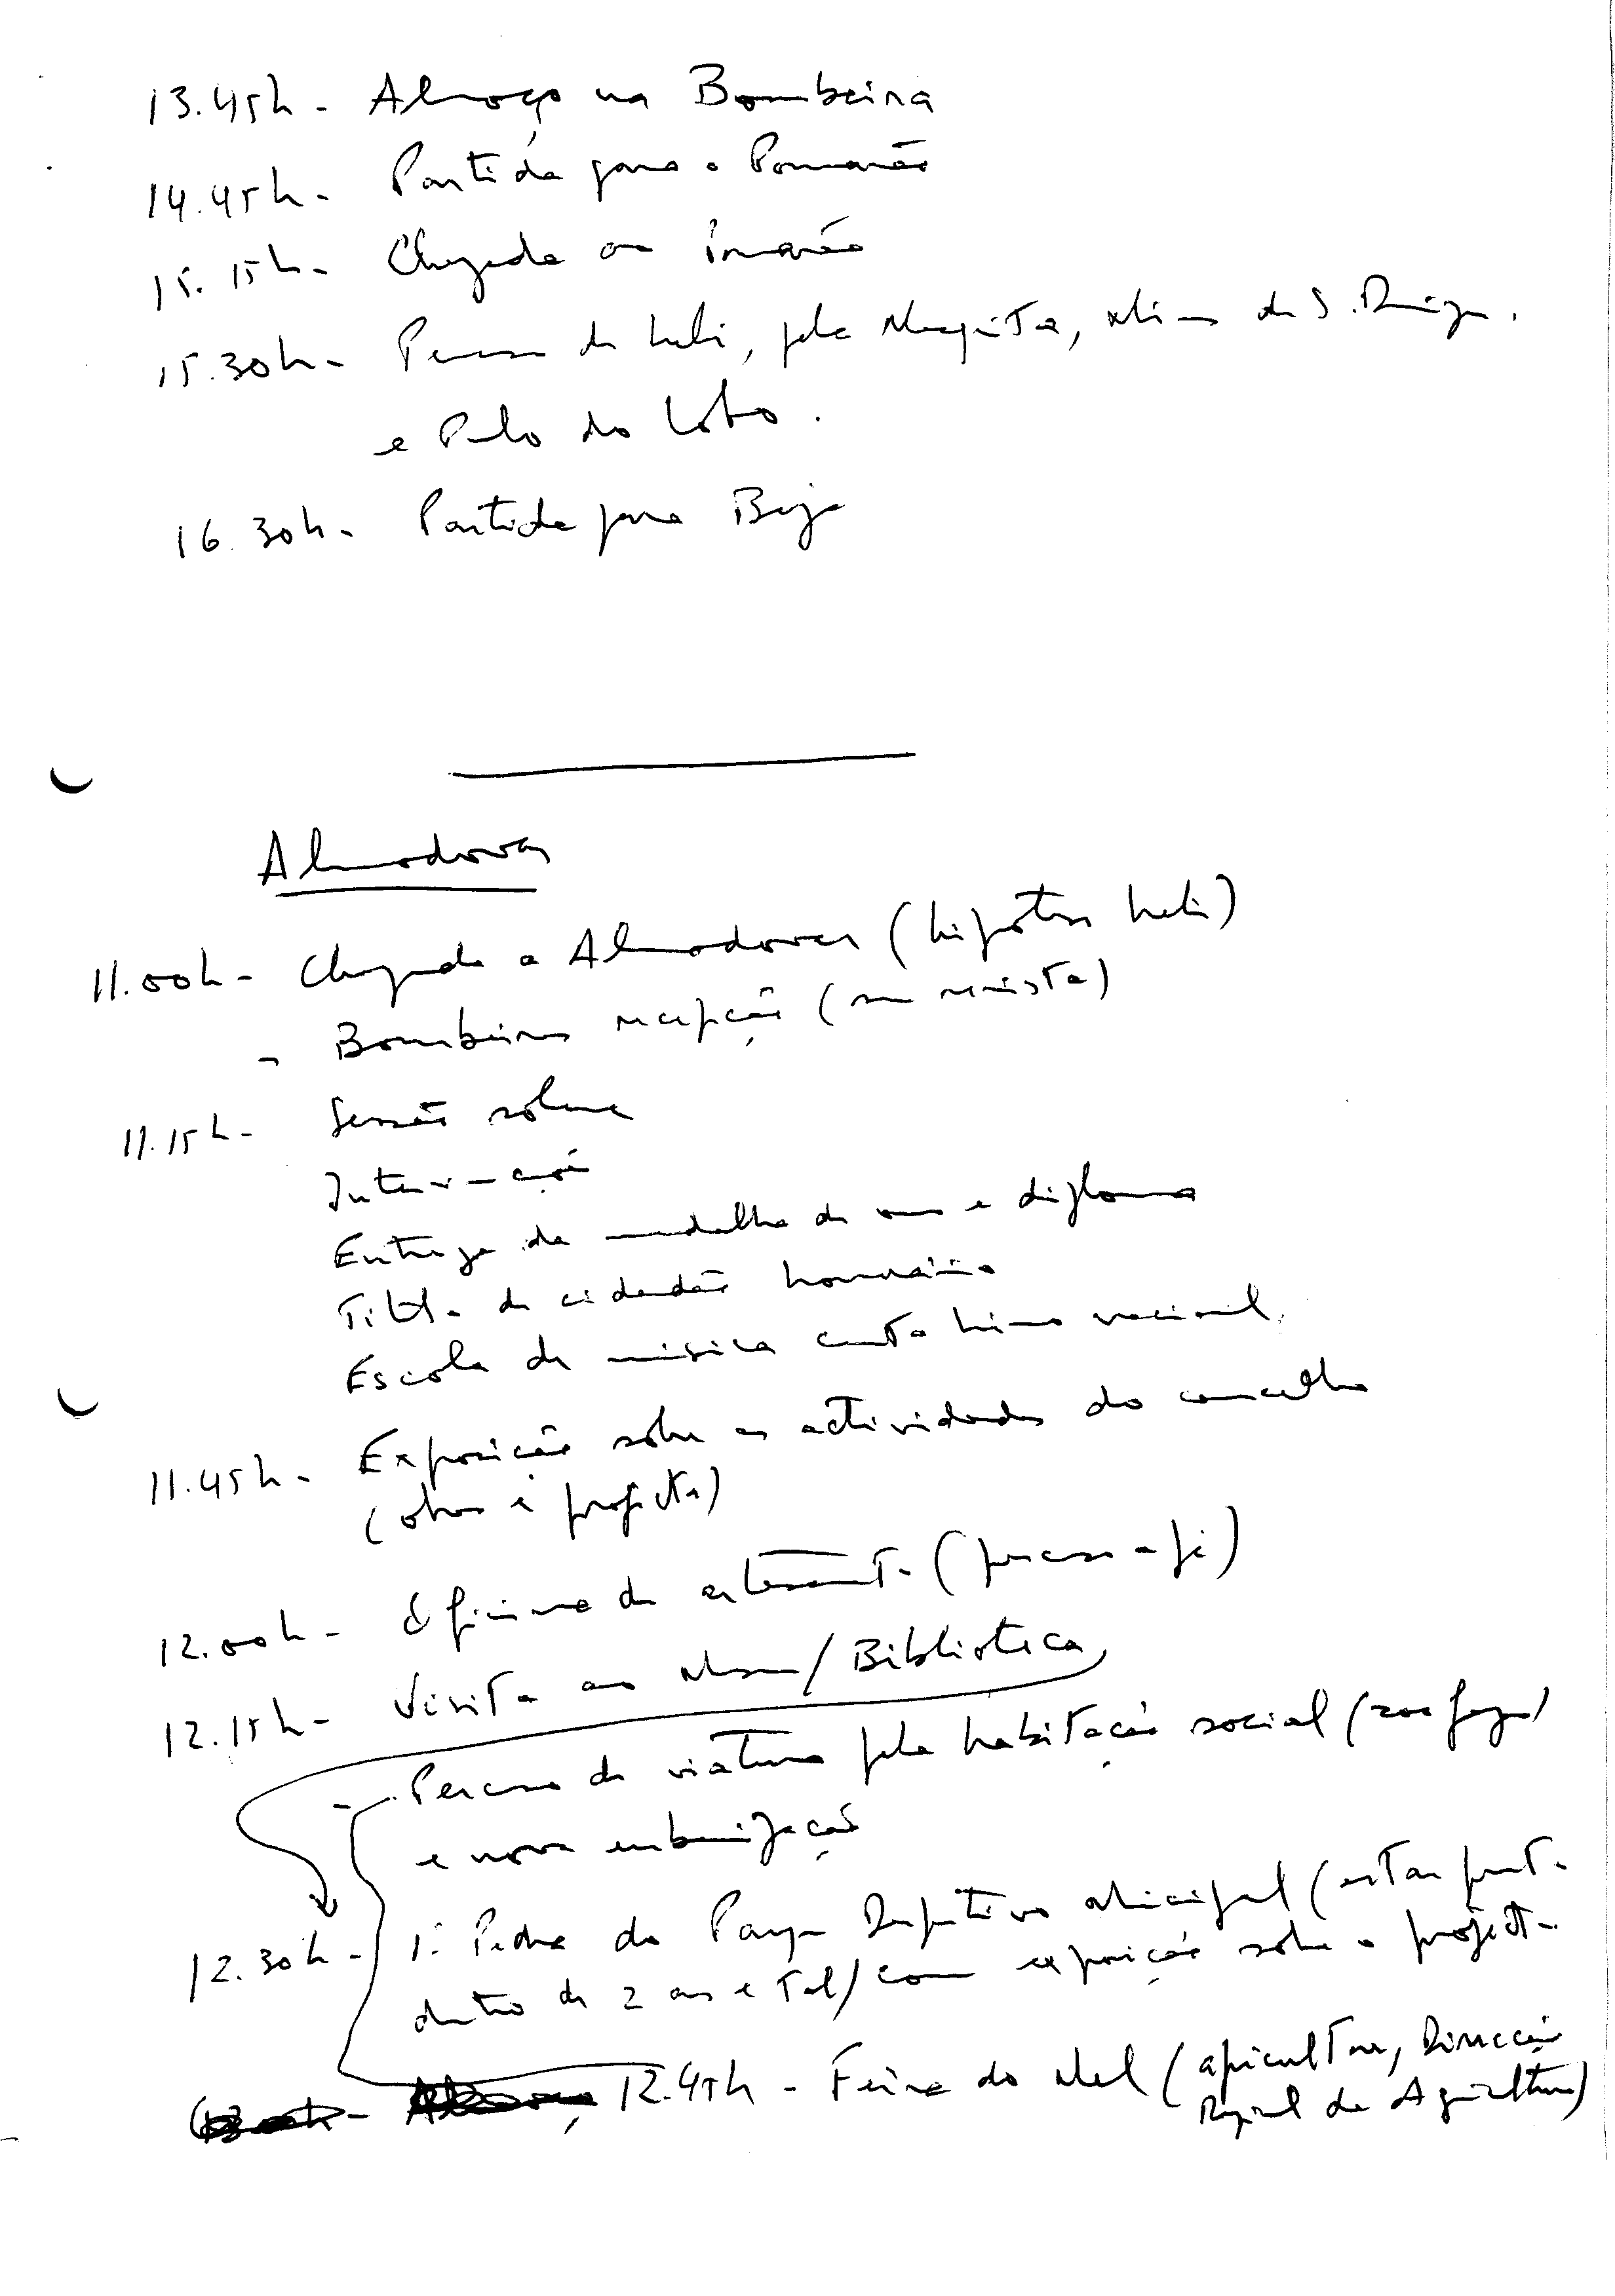 13.45h - Almoço na Bombeira
14.45h - Partida para o Pomarão
15.15h - Chegada ao Pomarão
15.30h - Percurso de heli, pela Mesquita, Minas de S. Domingos.
e Pulo do Lobo.
16.30h - Partida para Beja
Almodovar
11.00h - Chegada a Almodovar (hipótese heli)
- Bombeiros recepção (sem revista)
11.15h - Sessão solene
Intervenções
Entrega da medalha de ouro e diploma
Título de cidadão honorário
Escola de música canta hino nacional
11.45h - Exposição sobre as actividades do concelho
(obras e projectos)
12.00h - Oficina de artesanato (percurso a pé)
12.15h - Visita ao Museu/Biblioteca
- Percurso de viatura pela habitação social (200 fogos)
e nova urbanização
12.30h - 1ª Pedra do Parque Desportivo Municipal (estar pronto
dentro de 2 anos e tal) com exposição sobre o projecto
12.45h - Feira do Mel (apicultores, Direcção
Regional de Agricultura)